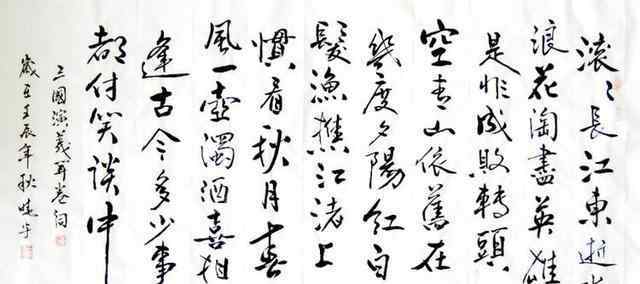 滚〻長江東逝水
浪花淘盡英雄
是非成敗轉頭
空青山依舊在
幾度夕陽紅白
髮漁樵江渚上
慣看秋月春
風一壺濁酒喜相
逢古今多少事
都付笑談中
三國演義开卷词
歲在壬辰年秋